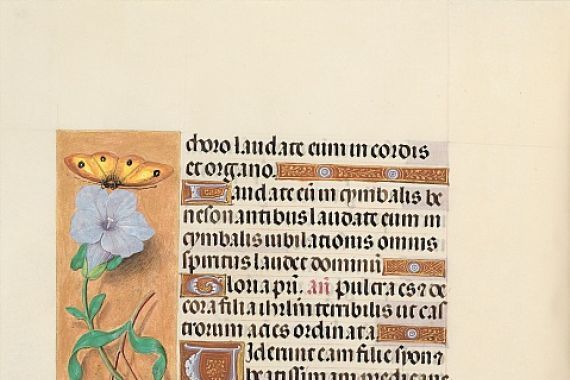 choro laudate eum in cordis
et organo.
Laudate eū in cymbalis be
nesonantibus laudate eum in
cymbalis iubilationis omnis
spiritus laudet dominū
Gloria pr̄i. an̄ pulcra es ⁊ de
cora filia ihrl̄m terribilis ut cas
trorum acies ordinata
Uiderunt eam filie syon ⁊
beatissimam predicaue